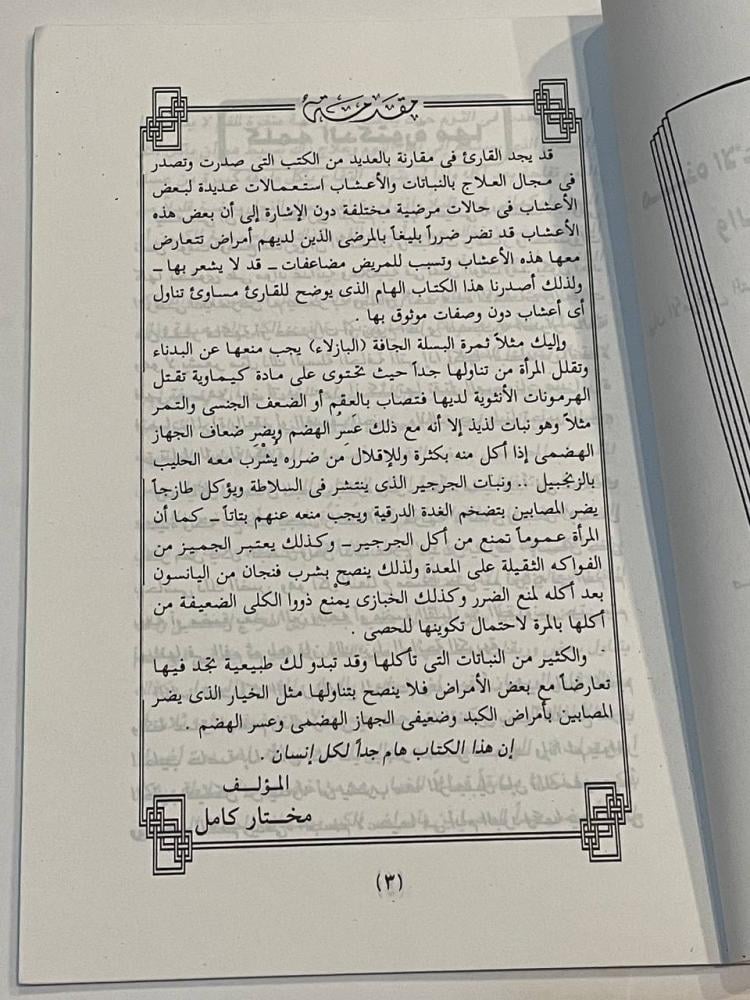 مقدمة
قد يجد القارئ فى مقارنة بالعديد من الكتب التى صدرت وتصدر
فى مجال العلاج بالنباتات والأعشاب استعمالات عديدة لبعض
الأعشاب فى حالات مرضية مختلفة دون الإشارة إلى أن بعض هذه
الأعشاب قد تضر ضرراً بليغاً بالمرضى الذين لديهم أمراض تتعارض
معها هذه الأعشاب وتسبب للمريض مضاعفات ــ قد لا يشعر بها ــ
ولذلك أصدرنا هذا الكتاب الهام الذى يوضح للقارئ مساوئ تناول
أى أعشاب دون وصفات موثوق بها .
وإليك مثلاً ثمرة البسلة الجافة (البازلاء) يجب منعها عن البدناء
وتقلل المرأة من تناولها جداً حيث تحتوى على مادة كيماوية تقتل
الهرمونات الأنثوية لديها فتصاب بالعقم أو الضعف الجنسى والتمر
مثلاً وهو نبات لذيذ إلا أنه مع ذلك عَسرُ الهضم ويُضر ضعاف الجهاز
الهضمى إذا أكل منه بكثرة وللإقلال من ضرره يشْرَب معه الحليب
بالزنجبيل .. ونبات الجرجير الذى ينتشر فى السلاطة ويؤكل طازجاً
يضر المصابين بتضخم الغدة الدرقية ويجب منعه عنهم بتاتاً ــ كما أن
المرأة عموماً تمنع من أكل الجرجير ــ وكذلك يعتبر الجميز من
الفواكه الثقيلة على المعدة ولذلك ينصح بشرب فنجان من اليانسون
بعد أكله لمنع الضرر وكذلك الخبازى يُمْنع ذووا الكلى الضعيفة من
أكلها بالمرة لاحتمال تكوينها للحصى .
والكثير من النباتات التى تأكلها وقد تبدو لك طبيعية تجد فيها
تعارضاً مع بعض الأمراض فلا ينصح بتناولها مثل الخيار الذى يضر
المصابين بأمراض الكبد وضعيفى الجهاز الهضمى وعسر الهضم .
إن هذا الكتاب هام جداً لكل إنسان .
المؤلف
مختار كامل
(٣)